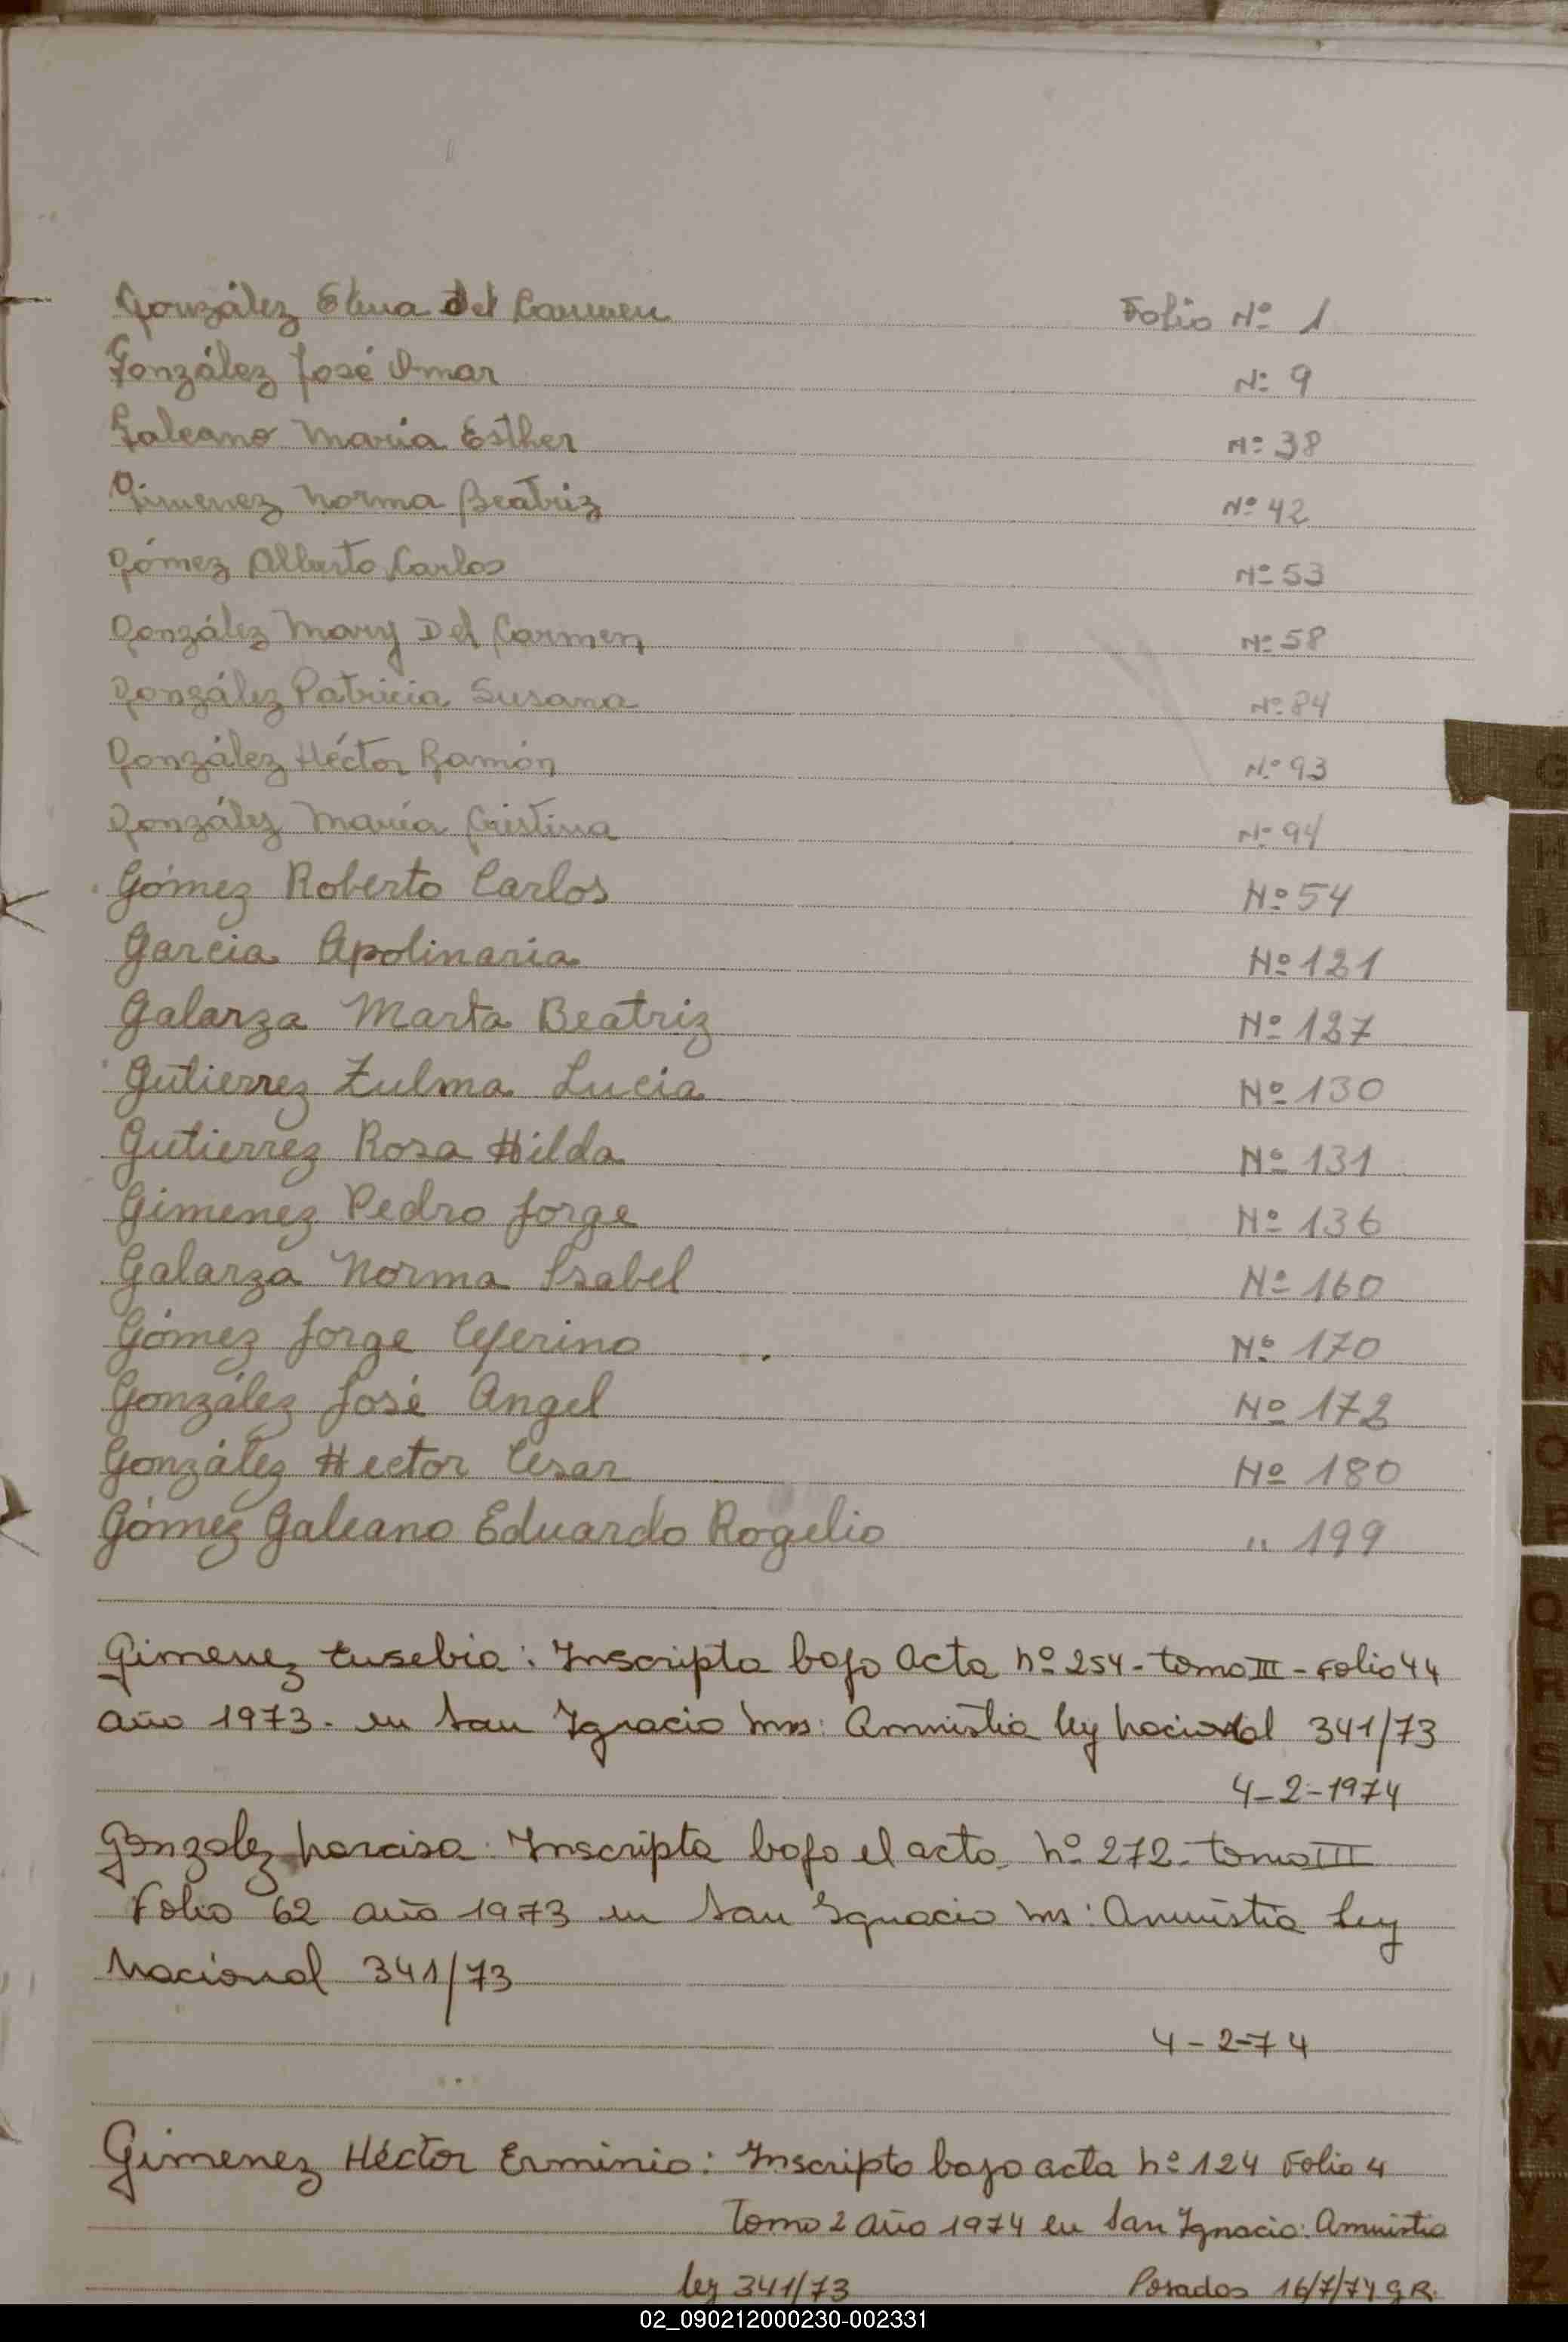 González Elena del Carmen Folio Nº 1
González José Omar Nº 9
Galeano Maria Esther Nº 38
Gimenez Norma Beatriz Nº 42
Gómez Alberto Carlos Nº 53
González Mary Del Carmen Nº 58
González Patricia Susana Nº 84
González Héctor Ramón Nº 93
González María Cristina Nº 94
Gómez Roberto Carlos Nº 54
Garcia Apolinaria Nº 121
Galarza Marta Beatriz Nº 127
Gutierrez Zulma Lucia Nº 130
Gutierrez Rosa Hilda Nº 131
Gimenez Pedro Jorge Nº 136
Galarza Norma Isabel Nº 160
Gómez Jorge Ceferino Nº 170
González José Angel Nº 172
González Hector Cesar Nº 180
Gómez Galeano Eduardo Rogelio " 199
Gimenez Eusebia: Inscripta bajo Acta nº 254 - tomo III - Folio 44
año 1973 - en San Ignacio Mns: Amnistia ley nacional 341/73
4-2-1974
Gonzalez Narcisa: Inscripta bajo el acta nº 272 - tomo III
Folio 62 año 1973 en San Ignacio Ms: Amnistia Ley
Nacional 341/73
4-2-74
Gimenez Héctor Erminio: Inscripto bajo acta nº 124 Folio 4
Tomo 2 Año 1974 en San Ignacio: Amnistia
ley 341/73 Posadas 16/7/74 G.R.
G
H
I
J
K
L
M
N
Ñ
O
P
Q
R
S
T
U
V
W
X
Y
Z
02_090212000230-002331